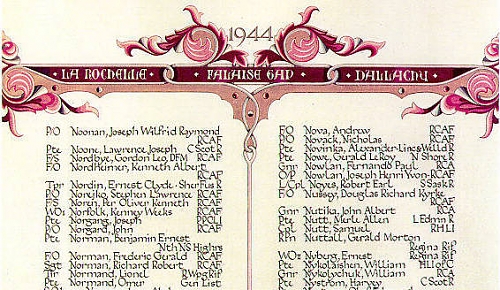 1944
LA ROCHELLE · FALAISE GAP · DALLACHY
P/O Noonan, Joseph Wilfrid Raymond
RCAF
Pte Noone, Lawrence Joseph C Scot R
F/S Nordbye, Gordon Leo, DFM RCAF
F/O Nordheimer, Kenneth Albert
RCAF
Tpr Nordin, Ernest Clyde · Sher Fus R
P/O Norejko, Stephen Lawrence RCAF
F/S Noren, Per Oliver Kenneth RCAF
WO1 Norfolk, Kenney Weeks RCAF
Pte Norgang, Joseph PPCLI
P/O Norgard, John RCAF
Pte Norman, Benjamin Ernest
Nth NS Highrs
F/O Norman, Frederic Gerald RCAF
Sgt Norman, Richard Robert RCAF
Tpr Normand, Lionel R Wpg Rif
Pte Normand, Omer Gen List
F/O Nova, Andrew RCAF
P/O Novack, Nicholas RCAF
Pte Novinka, Alexander · Lincs Welld R
Pte Nowe, Gerald LeRoy N Shore R
Gnr Nowlan, Fernando Paul RCA
O/P Nowlan, Joseph Henri Yvon · RCAF
L/Cpl Noyes, Robert Earl S Sask R
F/O Nussey, Douglas Richard Yorke
RCAF
Gnr Nutika, John Albert RCA
Pte Nutt, Merle Allen L Edmn R
Cpl Nutt, Samuel RHLI
Rfn Nuttall, Gerald Morton
Regina Rif
WO2 Nyberg, Ernest Regina Rif
Pte William HLI of C
Gnr William RCA
Pte Nystrom, Harvey C Scot R